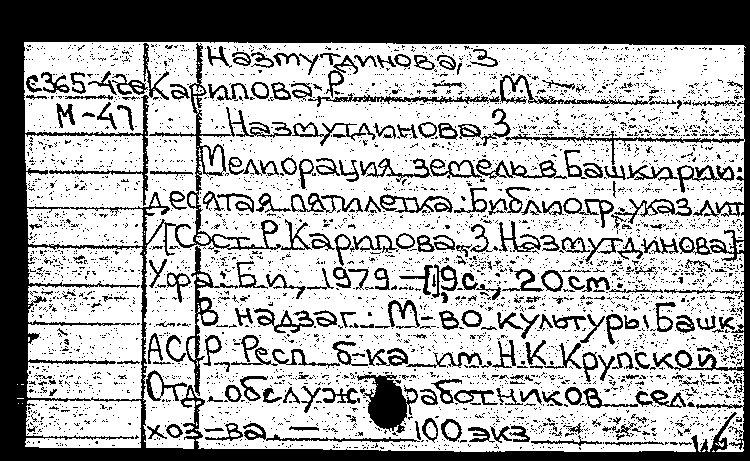 Назмутдинова, З
с365-42а Карипова, Р. — М
М-47 Назмутдинова, З
Мелиорация земель в Башкирии:
десятая пятилетка: Библиогр. указ. лит
/[Сост. Р. Карипова, З. Назмутдинова].
Уфа: Б.и., 1979.—[1], 9с., 20 см.
В надзаг.: М-во культуры Башк.
АССР, Респ. б-ка им. Н.К. Крупской
Отд. обслуж работников сел.
хоз-ва. — 100 экз